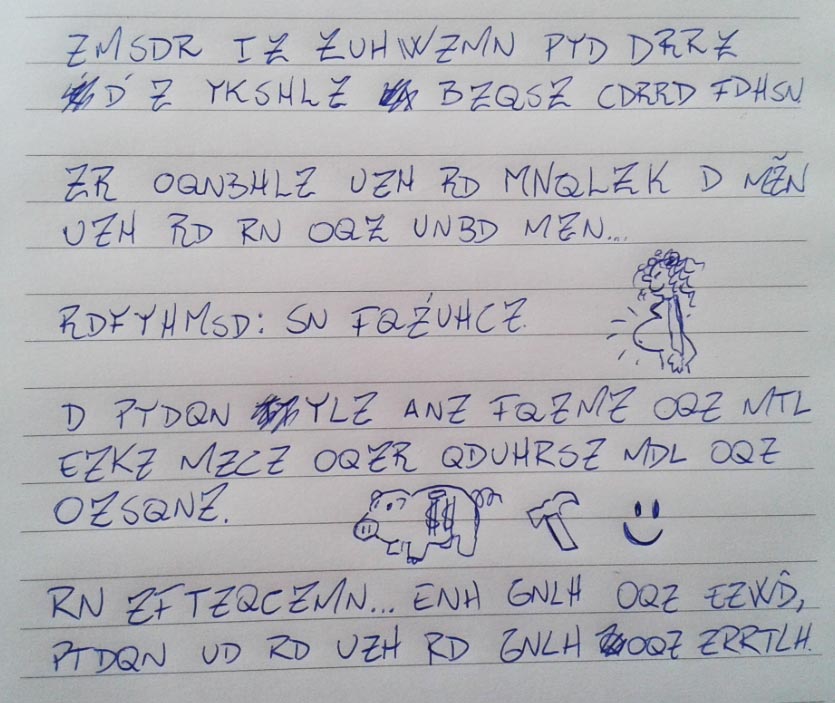 ZMSDR IZ ZUHWZMN PTD DRRZ
D´ Z TKSHLZ BZQSZ CDRRD FDHSN
ZR OQNBHLZ UZH RD MNQLZK D MZ̃N
UZH RD RN OQZ UNBD MZN...
RDFTHMSD: SN FQŹUHCZ.
D PTDQN TLZ ANZ FQZMZ OQZ MTL
EZKZ MZCZ OQZR QDUHRSZ MDL OQZ
OZSQNZ.
RN ZFTZQCZMN... ENH GNLH OQZ EZWD̂,
PTDQN UD RD UZH RD GNLH OQZ ZRRTLH.